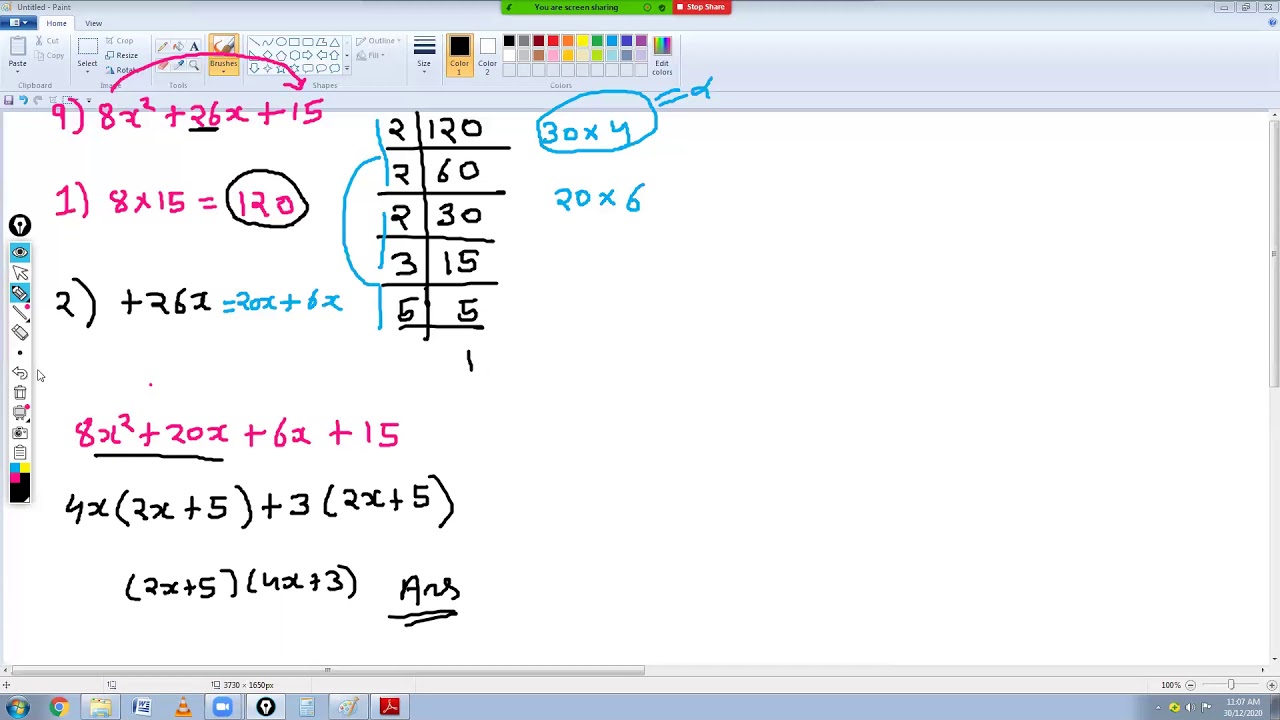 Untitled - Paint
You are screen sharing
Stop Share
Home
View
Paste
Cut
Copy
Clipboard
Select
Crop
Resize
Rotate
Image
Tools
Brushes
Shapes
Outline
Fill
Size
Color 1
Color 2
Edit colors
Colors
9) 8x² + 26x + 15
1) 8 × 15 = 120
2) + 26x = 20x + 6x
2 | 120
2 | 60
2 | 30
3 | 15
5 | 5
1
30 × 4
20 × 6
8x² + 20x + 6x + 15
4x (2x + 5) + 3 (2x + 5)
(2x + 5) (4x + 3) Ans
3730 × 1650px
100%
11:07 AM
30/12/2020